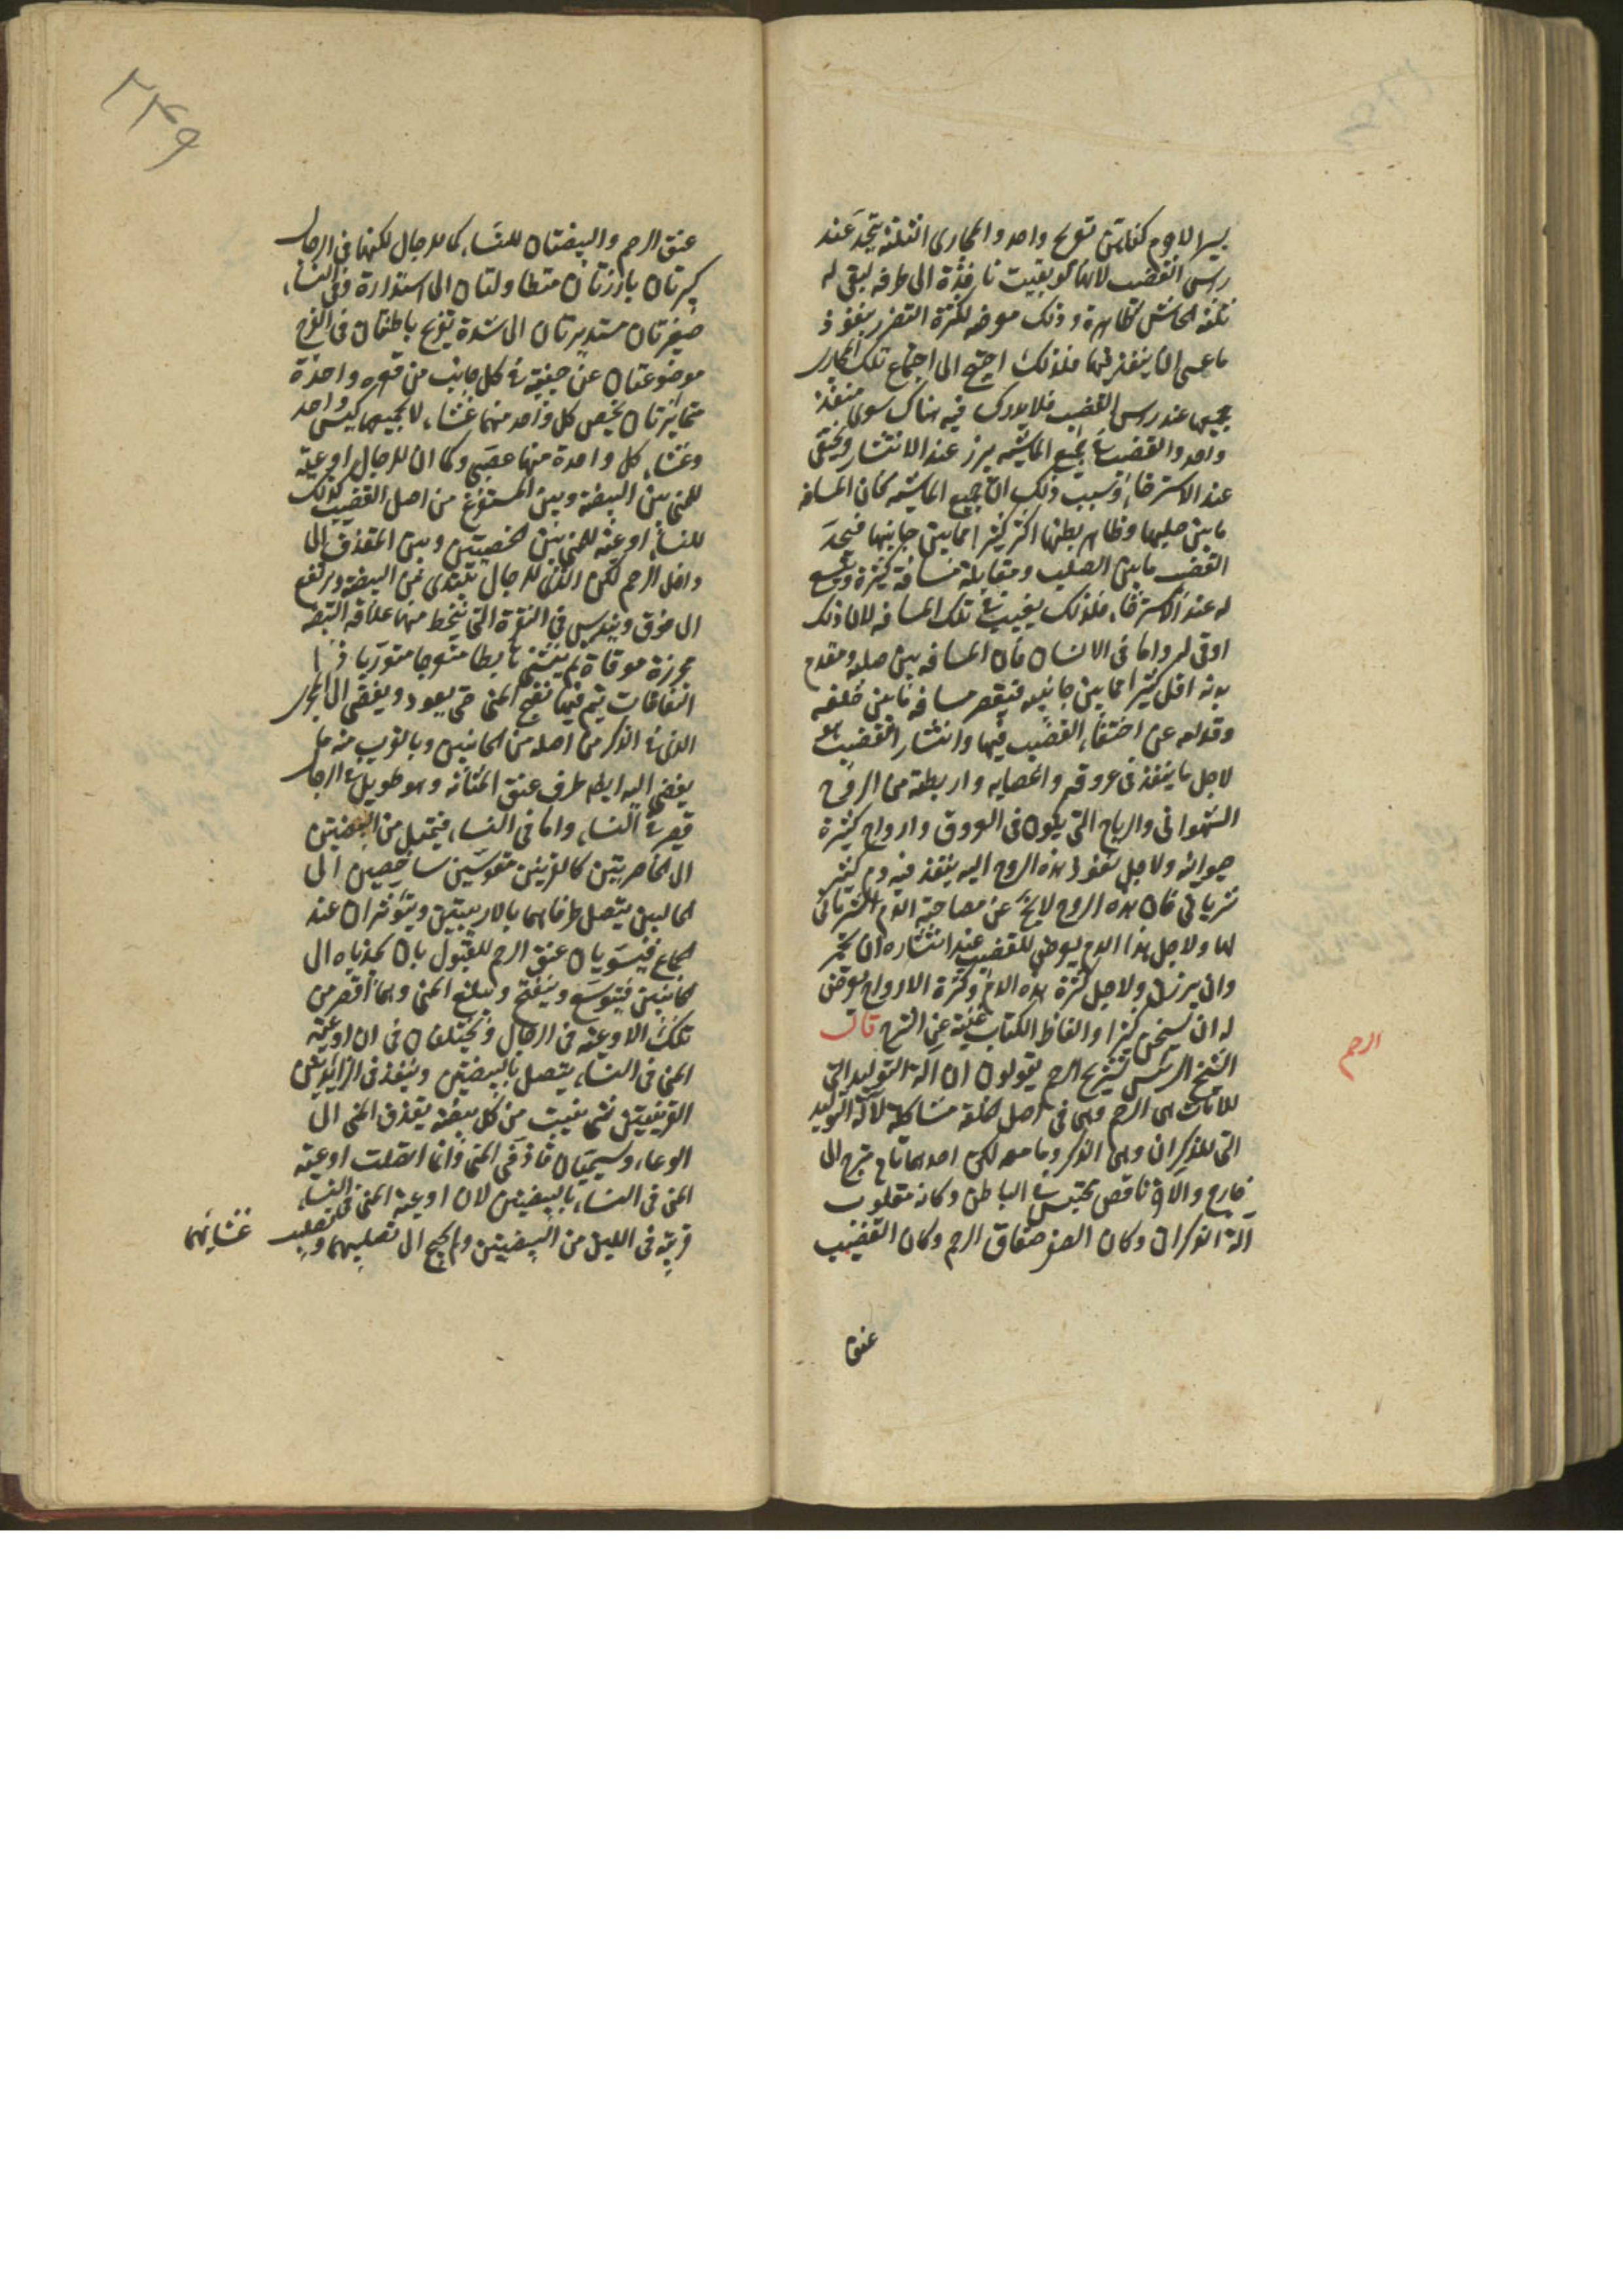 يسير الا وم كفاه تعريج واحد والمجارى الثلثة يتحد عند
راس القضيب لانها لو بقيت نافذة الى طرفه لبقى له
ثلثة ظاهرة وذلك موضع لكثرة التضرر بنفوذ
ما عسى ان ينفذ فيها فلذلك احتيج الى اجتماع تلك المجارى
جميعها عند راس القضيب فلا يدرك فيه هناك سوى منفذ
واحد والقضيب فى جميع الماشية يبرز عند الانتشار ويختفى
عند الاسترخاء وسبب ذلك ان جميع الماشية كان المسافة
ما بين صلبها وظاهر بطنها اكثر كثيرا مما بين جانبيها فيجد
القضيب ما بين الصلب ومقابله مسافة كثيرة ويتسع
له عند الاسترخاء فلذلك يغيب فى تلك المسافة لان ذلك
اوقى له واما فى الانسان فان المسافة بين صلبه ومقدم
بدنه اقل كثيرا مما بين جانبيه فيقصر مسافة ما بين خلفه
وقدامه عن اختفاء القضيب فيها وانتشار القضيب هو
لاجل ما ينفذ فى عروقه واعصابه واربطته من الروح
الشهوانى والرياح التى يكون فى العروق وارواح كثيرة
حيوانية ولاجل نفوذ هذه الروح اليه ينفذ فيه دم كثير
شريانى فان هذه الروح لا يخ عن مصاحبة الدم الشريانى
لها ولاجل هذا الدم يعرض للقضيب عند انتشاره ان يحمر
وان يبرنس ولاجل كثرة هذه الدم وكثرة الارواح يعرض
له ان يسخن كثيرا والفاظ الكتاب غنية عن الشرح قال
الشيخ الرئيس تشريح الرحم يقولون ان آلة التوليد التى
للاناث هى الرحم وهى فى اصل الخلقة مشاكلة لآلة التوليد
التى للذكران وهى الذكر وما معه لكن احدهما تام متبرج الى
خارج والاخر ناقص محتبس فى الباطن وكانه مقلوب
آلة الذكران وكان الصفن صفاق الرحم وكان القضيب
الرحم
عنق
٢٤٩
عنق الرحم والبيضتان للنساء كما للرجال لكنها فى الرجال
كبيرتان بارزتان متطاولتان الى استدارة وفى النساء
صغيرتان مستديرتان الى شدة تفرطح باطنتان فى الفرج
موضوعتان عن جنبيه فى كل جانب من قعره واحدة
متمايزتان يختص كل واحد منهما غشاء لا يجمعهما كيس واحد
وغشاء كل واحدة منهما عصبى وكما ان للرجال اوعية
للمنى بين البيضة وبين المستفرغ من اصل القضيب كذلك
للنساء اوعية للمنى بين الخصيتين وبين المقذف الى
داخل الرحم لكن الذى للرجال يبتدى من البيضة ويرتفع
الى فوق ويندس فى النقرة التى تنحط منها علاقة البيضة
محرزة موقاة ثم ينثنى هابطا متعوجا متوربا ذا
التفافات يتم فيها نضج المنى حتى يعود ويفضى الى المجرى
الذى فى الذكر من اصله من الجانبين وبالقرب منه ما
يفضى اليه ايضا طرف عنق المثانة وهو طويل فى الرجال
قصير فى النساء واما فى النساء فيميل من البيضتين
الى الخاصرتين كالقرنين مقوستين شاخصين الى
الحالبين يتصل طرفاهما بالاربيتين ويتوتران عند
الجماع فيسويان عنق الرحم للقبول بان يجذباه الى
جانبين فيتوسع وينفتح ويبلع المنى وهما اقصر من
تلك الاوعية فى الرجال ويختلفان فى ان اوعية
المنى فى النساء يتصل بالبيضتين وينفذ فى الزائدتين
القرنيتين شى ينبت من كل بيضة يقذف المنى الى
الوعاء ويسميان قاذفى المنى وانما اتصلت اوعية
المنى فى النساء بالبيضتين لان اوعية المنى فى النساء
قريبة فى اللين من البيضتين ولم يحتج الى تصليبهما وتصليب غشائهما